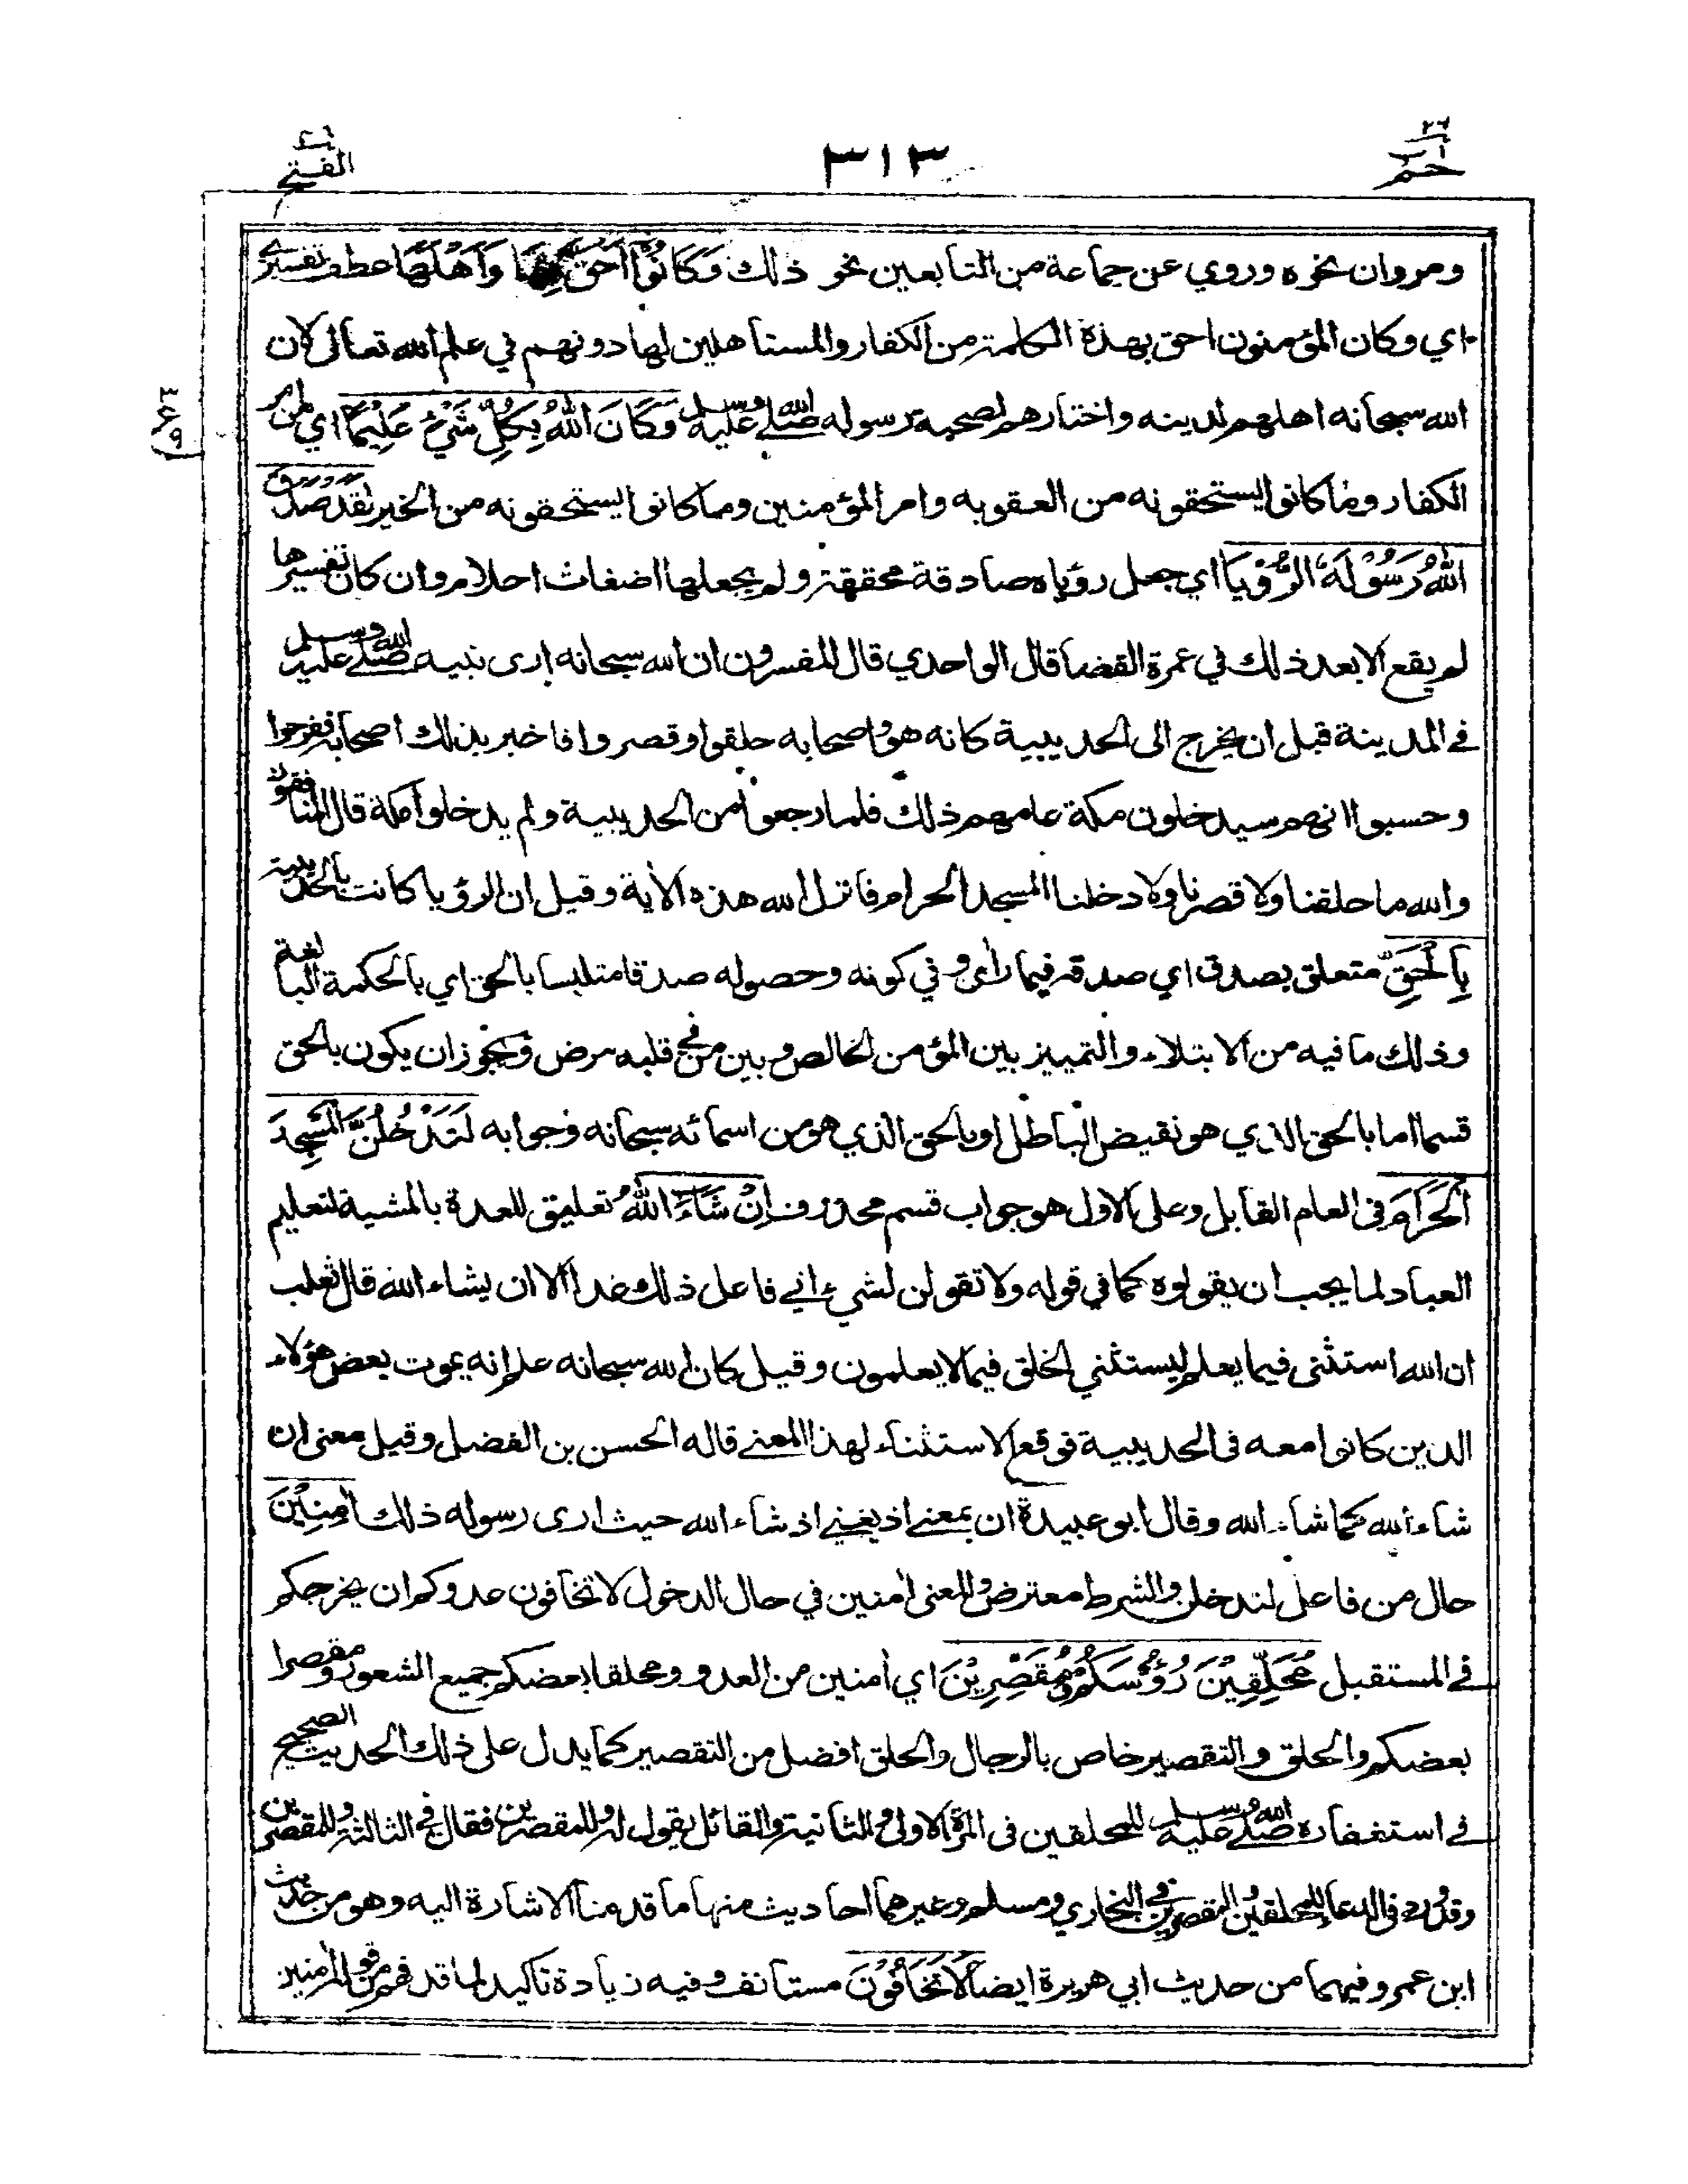 حم ٢٦
٣١٣
الفتح
ومروان نحوه وروي عن جماعة من التابعين نحو ذلك وَكَانُوْا اَحَقَّ بِهَا وَاَهْلَهَا عطف تفسيري
اي وكان المؤمنون احق بهذه الكلمة من الكفار والمستاهلين لها دونهم في علم الله تعالى لان
الله سبحانه اهلهم لدينه واختارهم لصحبة رسوله صلى الله عليه وسلم وَكَانَ اللهُ بِكُلِّ شَيْءٍ عَلِيْمًا اي من امر
الكفار وما كانوا يستحقونه من العقوبه وامر المؤمنين وما كانوا يستحقونه من الخير لَقَدْ صَدَقَ
اللهُ رَسُوْلَهُ الرُّؤْيَا اي جعل رؤياه صادقة محققة ولم يجعلها اضغاث احلام وان كان تفسيرها
لم يقع الا بعد ذلك في عمرة القضا قال الواحدي قال المفسرون ان الله سبحانه ارى نبيه صلى الله عليه وسلم
في المدينة قبل ان يخرج الى الحديبية كانه هو واصحابه حلقوا وقصروا فاخبر بذلك اصحابه ففرحوا
وحسبوا انهم سيدخلون مكة عامهم ذلك فلما رجعوا من الحديبية ولم يدخلوا مكة قال المنافقون
والله ما حلقنا ولا قصرنا ولا دخلنا المسجد الحرام فانزل الله هذه الأية وقيل ان الرؤيا كانت بالحديبية
بِالْحَقِّ متعلق بصدق اي صدقه فيما راى وفي كونه وحصوله صدقا متلبسا بالحق اي بالحكمة البالغة
وذلك ما فيه من الابتلاء والتمييز بين المؤمن الخالص وبين من في قلبه مرض ويجوز ان يكون بالحق
قسما اما بالحق الذي هو نقيض الباطل او بالحق الذي هو من اسمائه سبحانه وجوابه لَتَدْخُلُنَّ الْمَسْجِدَ
الْحَرَامَ في العام القابل وعلى الاول هو جواب قسم محذوف اِنْ شَاءَ اللهُ تعليق للعدة بالمشية لتعليم
العباد لما يجب ان يقولوه كما في قوله ولا تقولن لشيء اني فاعل ذلك غدا الا ان يشاء الله قال ثعلب
ان الله استثنى فيما يعلم ليستثني الخلق فيما لا يعلمون وقيل كان الله سبحانه علم انه يموت بعض هؤلاء
الذين كانوا معه في الحديبية فوقع الاستثناء لهذا المعنى قاله الحسن بن الفضل وقيل معنى ان
شاء الله كما شاء الله وقال ابو عبيدة ان بمعنى اذ يعني اذ شاء الله حيث ارى رسوله ذلك اٰمِنِيْنَ
حال من فاعل لتدخلن والشرط معترض والمعنى اٰمنين في حال الدخول لا تخافون عدوكم ان يخرجكم
في المستقبل مُحَلِّقِيْنَ رُؤُسَكُمْ وَمُقَصِّرِيْنَ اي اٰمنين من العدو ومحلقا بعضكم جميع الشعور ومقصرا
بعضكم والحلق والتقصير خاص بالرجال والحلق افضل من التقصير كما يدل على ذلك الحديث الصحيح
في استغفاره صلى الله عليه وسلم للمحلقين في المرة الاولى والثانية والقائل يقول له وللمقصرين فقال في الثالثة وللمقصرين
وقد ورد في الدعاء للمحلقين والمقصرين في البخاري ومسلم وغيرهما احاديث منها ما قدمنا الاشارة اليه وهو من حديث
ابن عمر وفيهما من حديث ابي هريرة ايضا لَا تَخَافُوْنَ مستانف وفيه زيادة تاكيد لما قد فهم من قوله اٰمنين